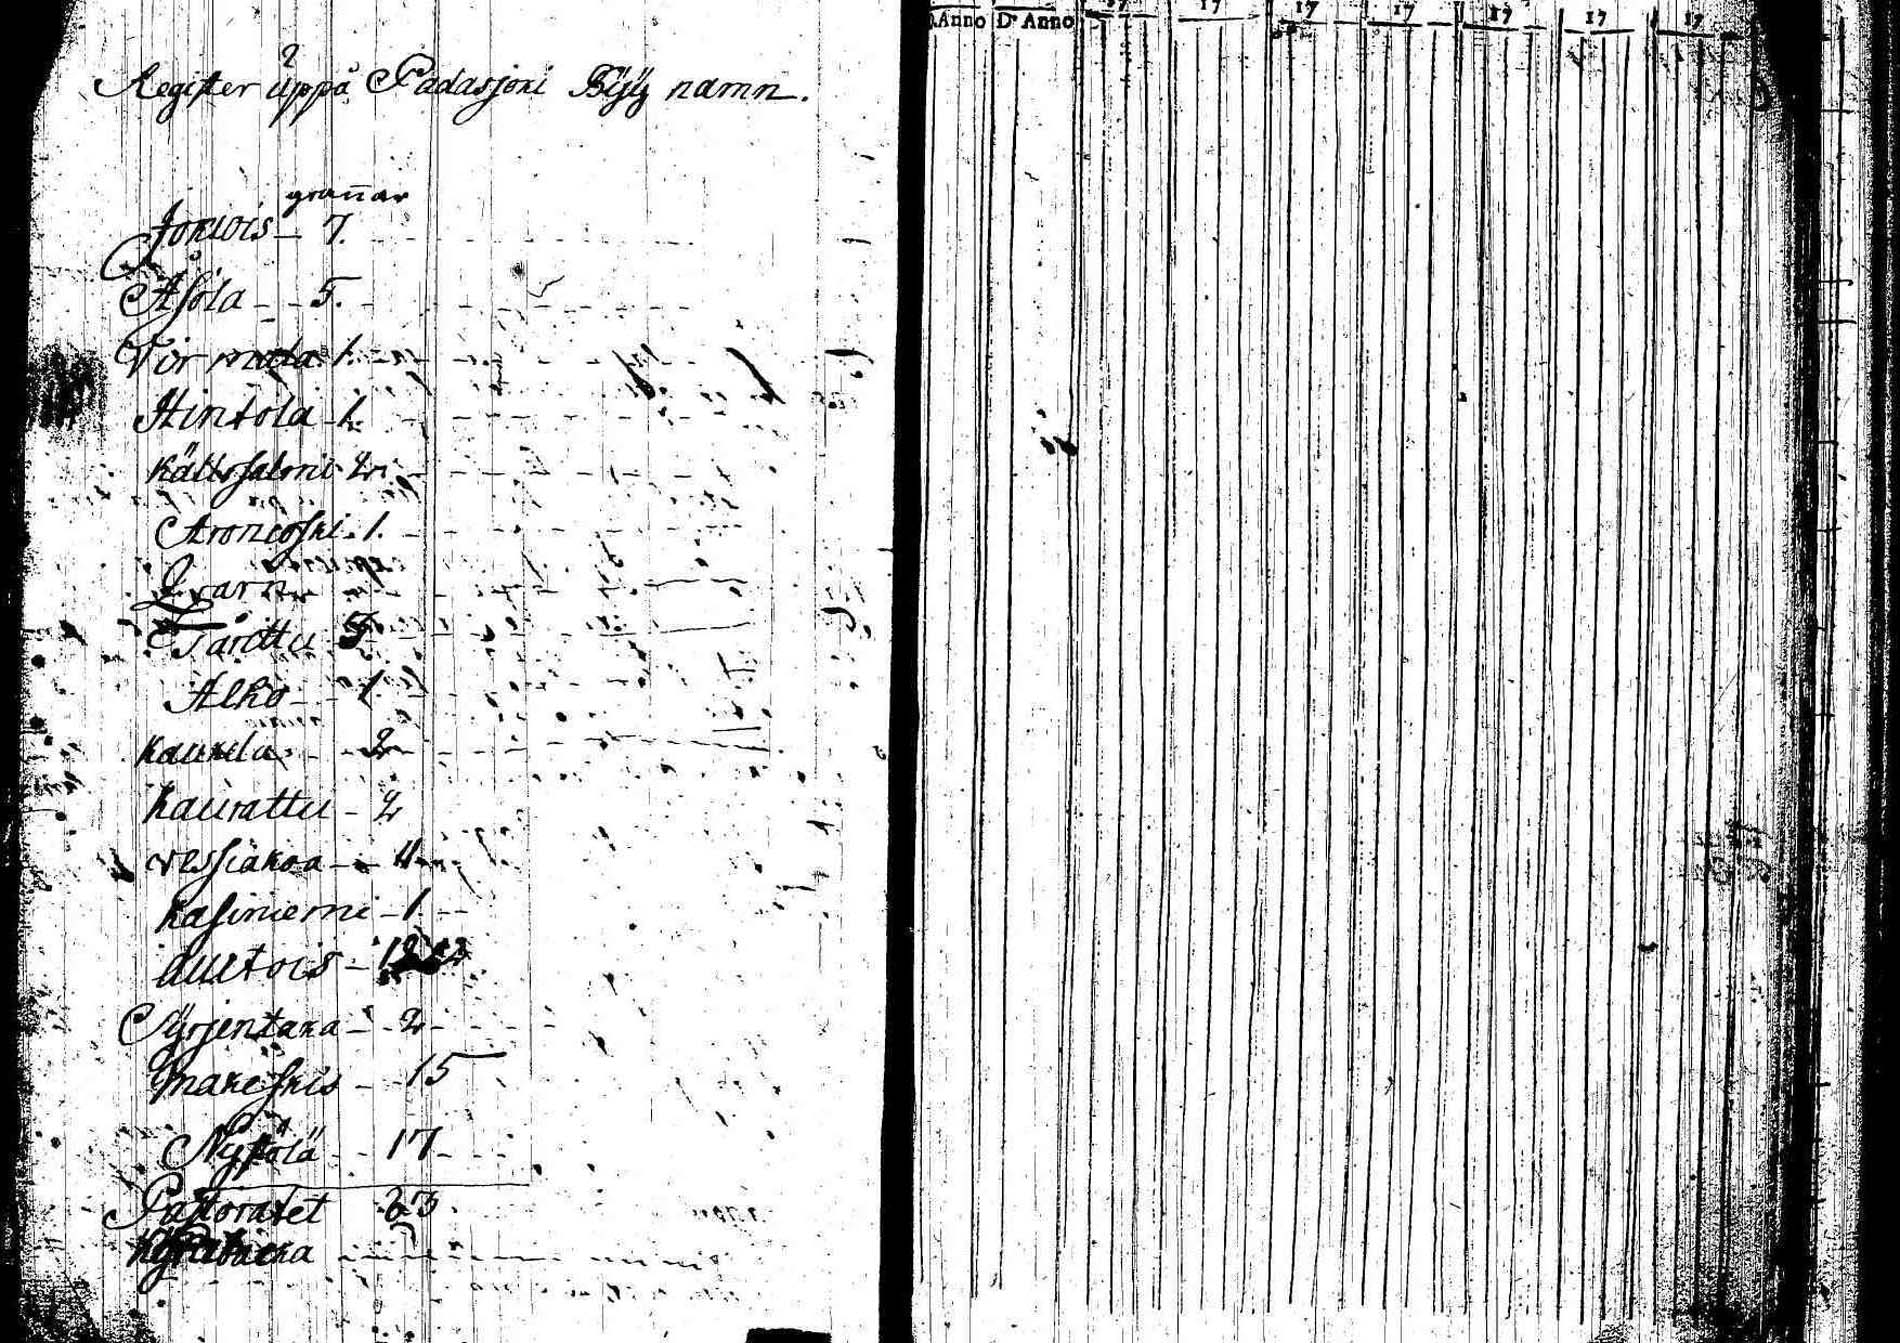 Register uppå Padasjoki Byÿ namn.
grañar
Jokiois - 7.
Åsola - - 5.
Virmala 1.
Hintola - 1.
Källosalmi 2.
Aroncoski - 1.
Qvarn
Tarottu 5
Alho - - 1
Kaukela - - 2
Kaurattu - 2
vessiäkoa - - 4
Kasiniemi - 1.
Auttois - 12
Syrjentaka - - 2
Maakeskis - 15
Nystölä - - 17
Pastoratet 23
Anno Dº Anno 17 17 17 17 17 17 17